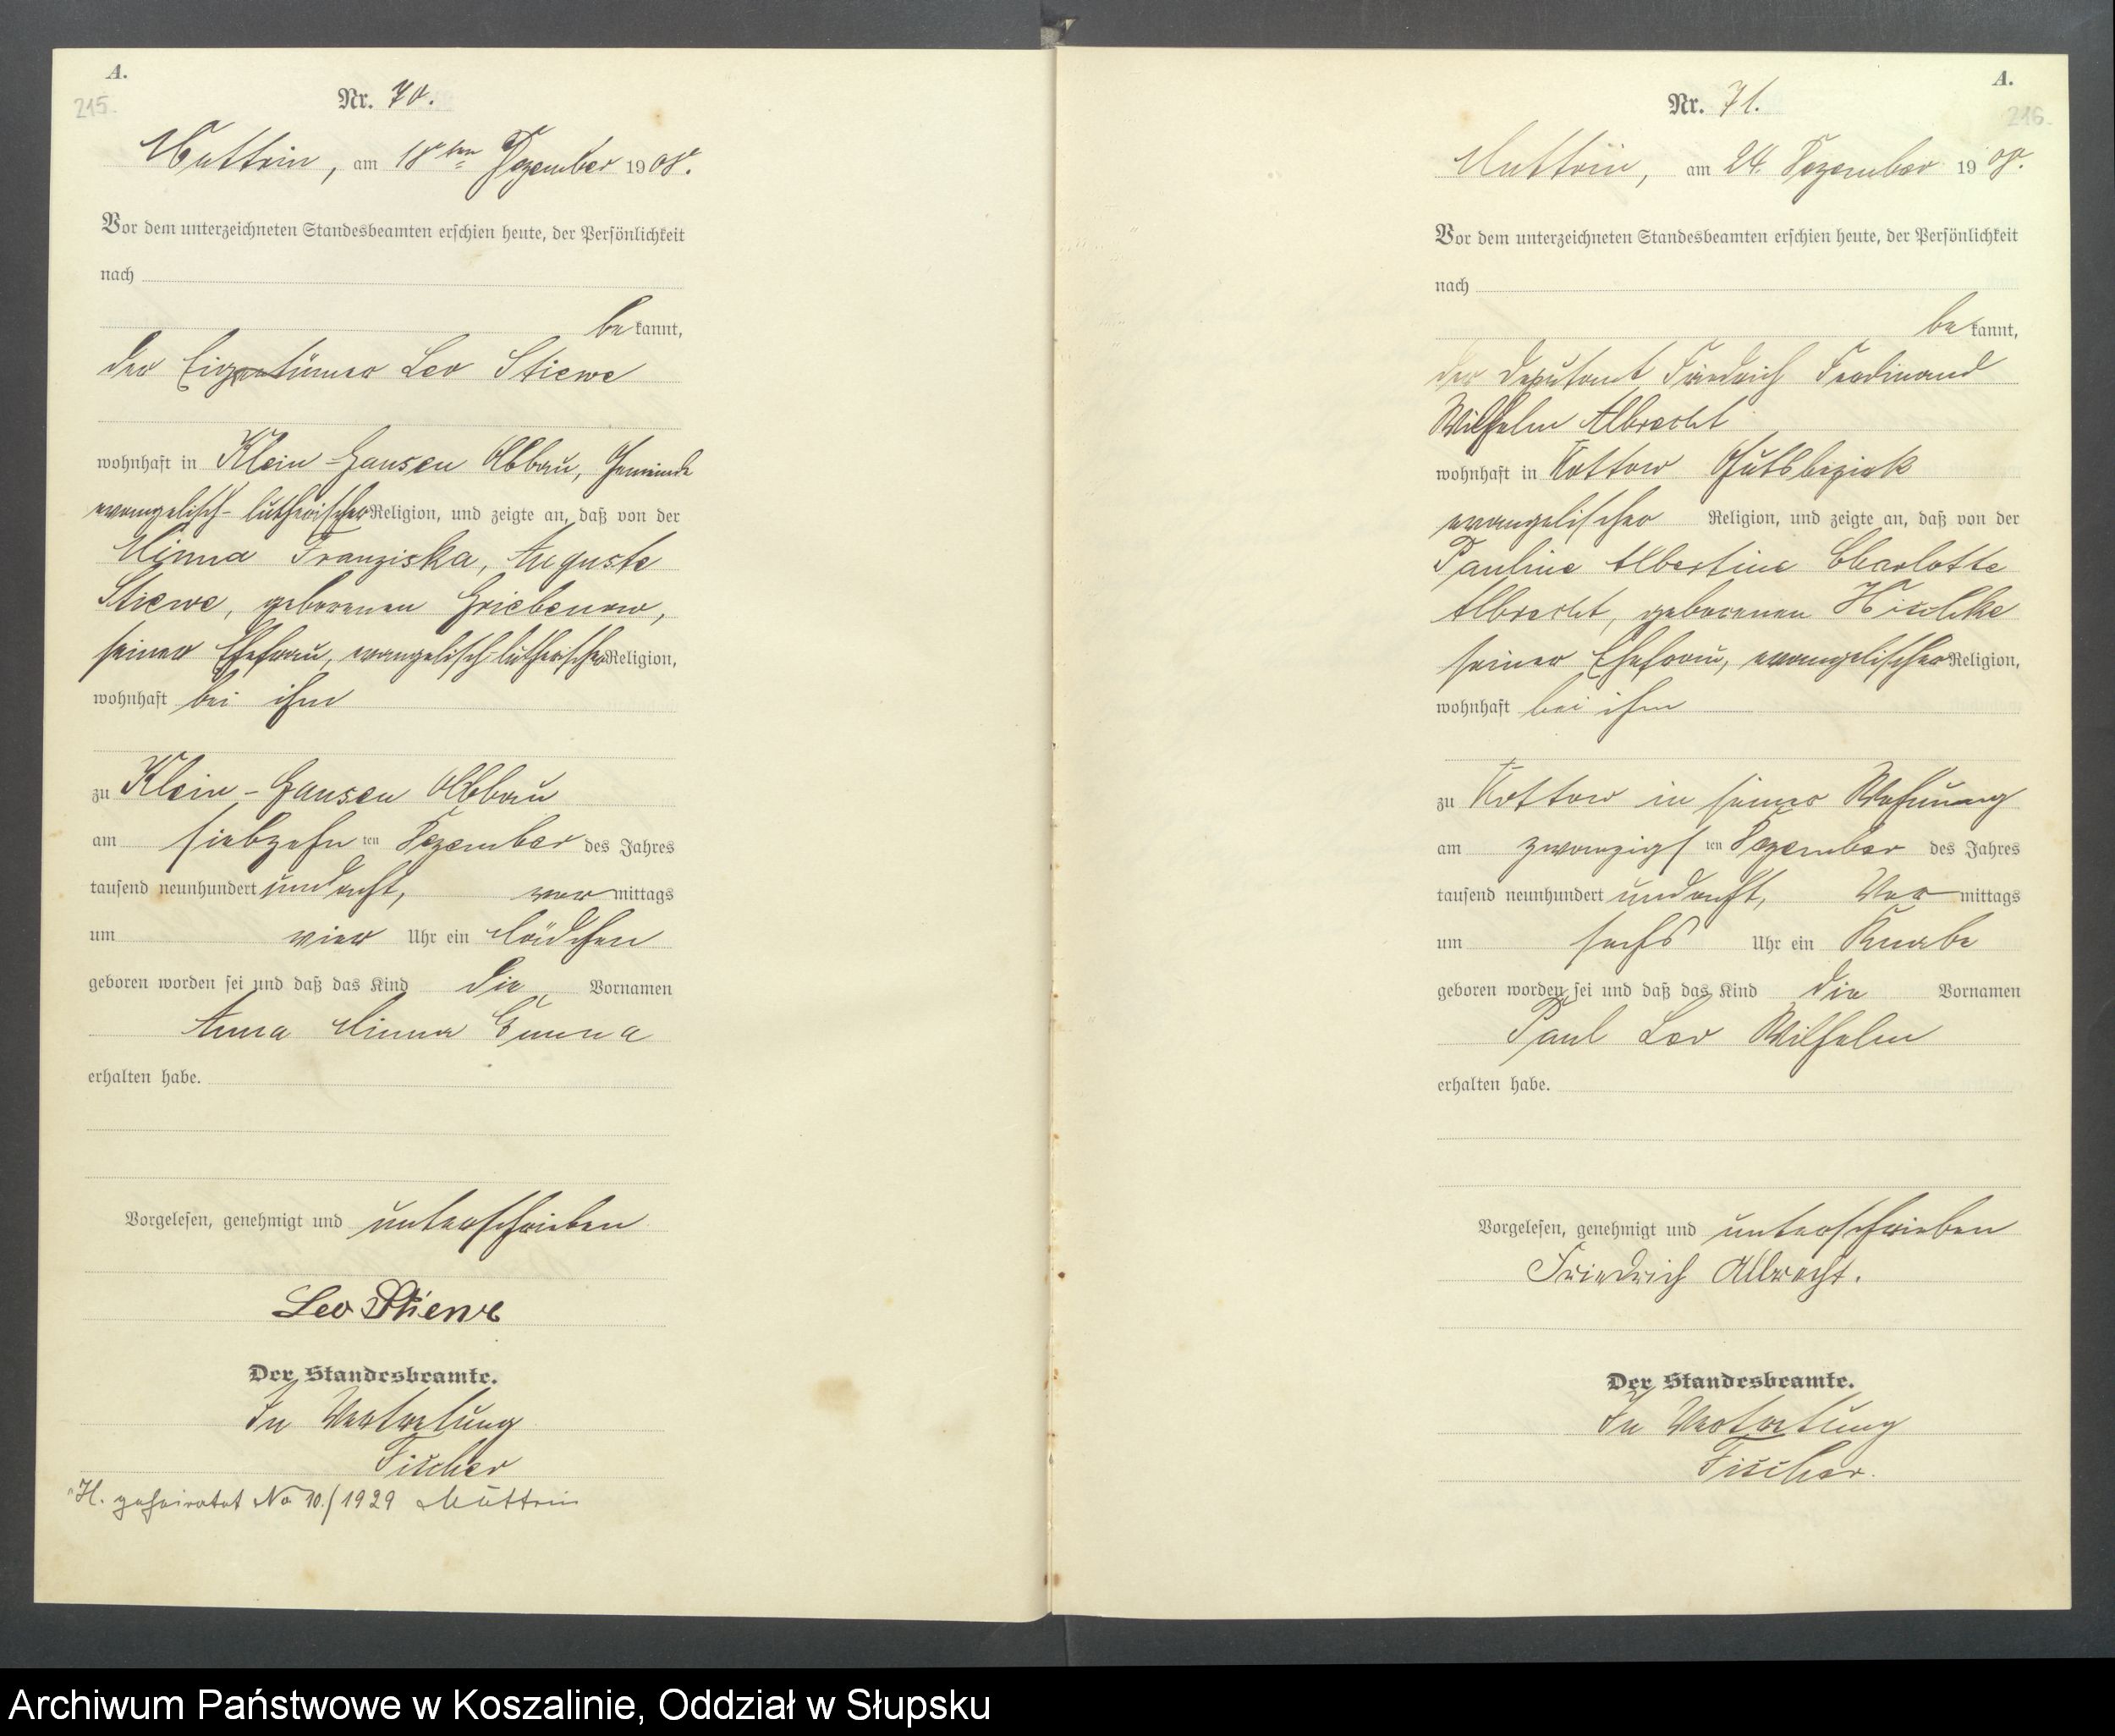 A.
215.
Nr. 70.
Muttrin, am 18ten Dezember 1908.
Vor dem unterzeichneten Standesbeamten erschien heute, der Persönlichkeit
nach
bekannt,
der Eigentümer Leo Stiewe
wohnhaft in Klein-Gansen Abbau, Gemeinde
evangelisch-lutherischer Religion, und zeigte an, daß von der
Minna Franziska, Auguste
Stiewe, geborenen Griebenow,
seiner Ehefrau, evangelisch-lutherischer Religion,
wohnhaft bei ihm
zu Klein-Gansen Abbau
am siebzehnten Dezember des Jahres
tausend neunhundert und acht, vormittags
um vier Uhr ein Mädchen
geboren worden sei und daß das Kind die Vornamen
Anna Minna Emma
erhalten habe.
Vorgelesen, genehmigt und unterschrieben
Leo Stiewe
Der Standesbeamte.
In Vertretung
Fischer
H. geheiratet No 10./1929 Muttrin
A.
216.
Nr. 71.
Muttrin, am 24. Dezember 1908.
Vor dem unterzeichneten Standesbeamten erschien heute, der Persönlichkeit
nach
bekannt,
der Deputant Friedrich Ferdinand
Wilhelm Albrecht
wohnhaft in Kottow Gutsbezirk
evangelischer Religion, und zeigte an, daß von der
Pauline Albertine Charlotte
Albrecht, geborenen
seiner Ehefrau, evangelischer Religion,
wohnhaft bei ihm
zu Kottow in seiner Wohnung
am zwanzigsten Dezember des Jahres
tausend neunhundert und acht, Vormittags
um sechs Uhr ein Knabe
geboren worden sei und daß das Kind die Vornamen
Paul Leo Wilhelm
erhalten habe.
Vorgelesen, genehmigt und unterschrieben
Friedrich Albrecht.
Der Standesbeamte.
In Vertretung
Fischer.
Archiwum Państwowe w Koszalinie, Oddział w Słupsku